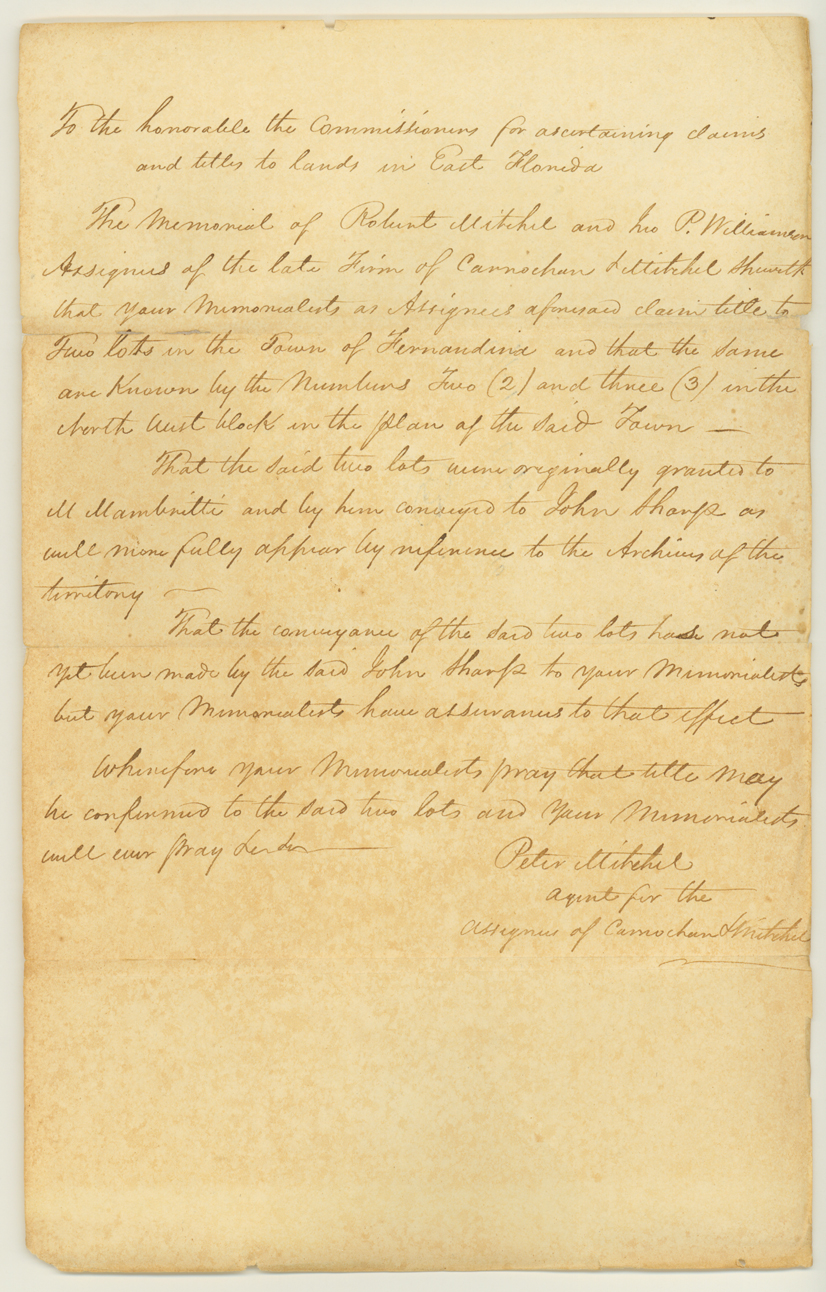 To the honorable the Commissioners for ascertaining claims
and titles to lands in East Florida
The Memorial of Robert Mitchel and Jno P. Williamson
Assignees of the late Firm of Carnochan & Mitchel Sheweth
that your Memorialists as Assignees aforesaid claim title to
Two lots in the Town of Fernandina and that the same
are Known by the Numbers Two (2) and three (3) in the
North West block in the plan of the said Town —
That the said two lots were originally granted to
M and by him conveyed to John Sharp as
will more fully appear by reference to the Archives of the
territory —
That the conveyance of the said two lots has not
yet been made by the said John Sharp to your Memorialists
but your Memorialists have assurances to that effect —
Wherefore your Memorialists pray that title may
be confirmed to the said two lots and your Memorialists
will ever pray &c &c —
Peter Mitchel
agent for the
assignees of Carnochan & Mitchel